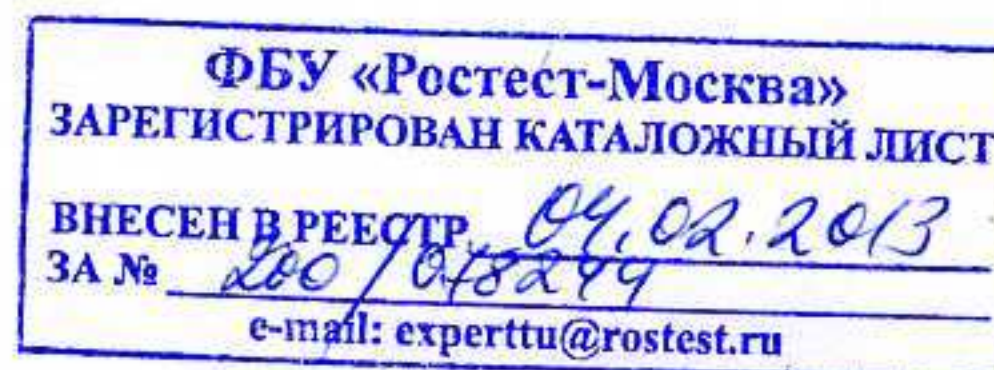 ФБУ «Ростест-Москва»
ЗАРЕГИСТРИРОВАН КАТАЛОЖНЫЙ ЛИСТ
ВНЕСЕН В РЕЕСТР 04.02.2013
ЗА № 200/078244
e-mail: experttu@rostest.ru